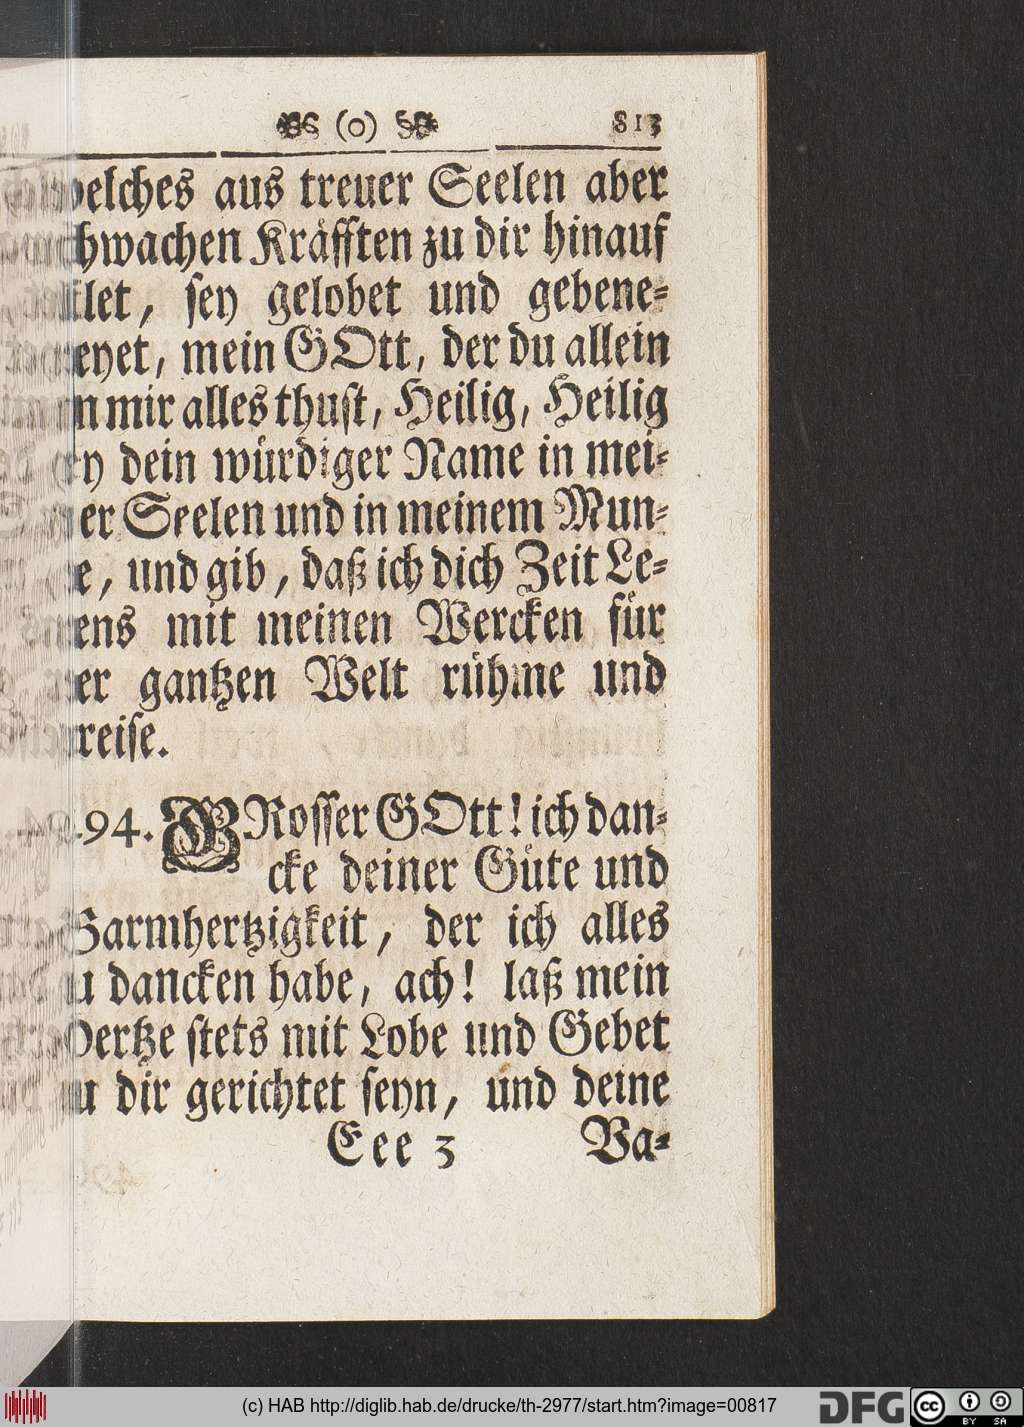 (o) 813
welches aus treuer Seelen aber
schwachen Kräfften zu dir hinauf
let, sey gelobet und gebene-
deyet, mein GOtt, der du allein
an mir alles thust, Heilig, Heilig
sey dein würdiger Name in mei-
ner Seelen und in meinem Mun-
de, und gib, daß ich dich Zeit Le-
bens mit meinen Wercken für
der gantzen Welt rühme und
preise.
494. GRosser GOtt! ich dan-
cke deiner Güte und
Barmhertzigkeit, der ich alles
zu dancken habe, ach! laß mein
Hertze stets mit Lobe und Gebet
zu dir gerichtet seyn, und deine
Eee 3 Va-
(c) HAB http://diglib.hab.de/drucke/th-2977/start.htm?image=00817
DFG cc BY SA